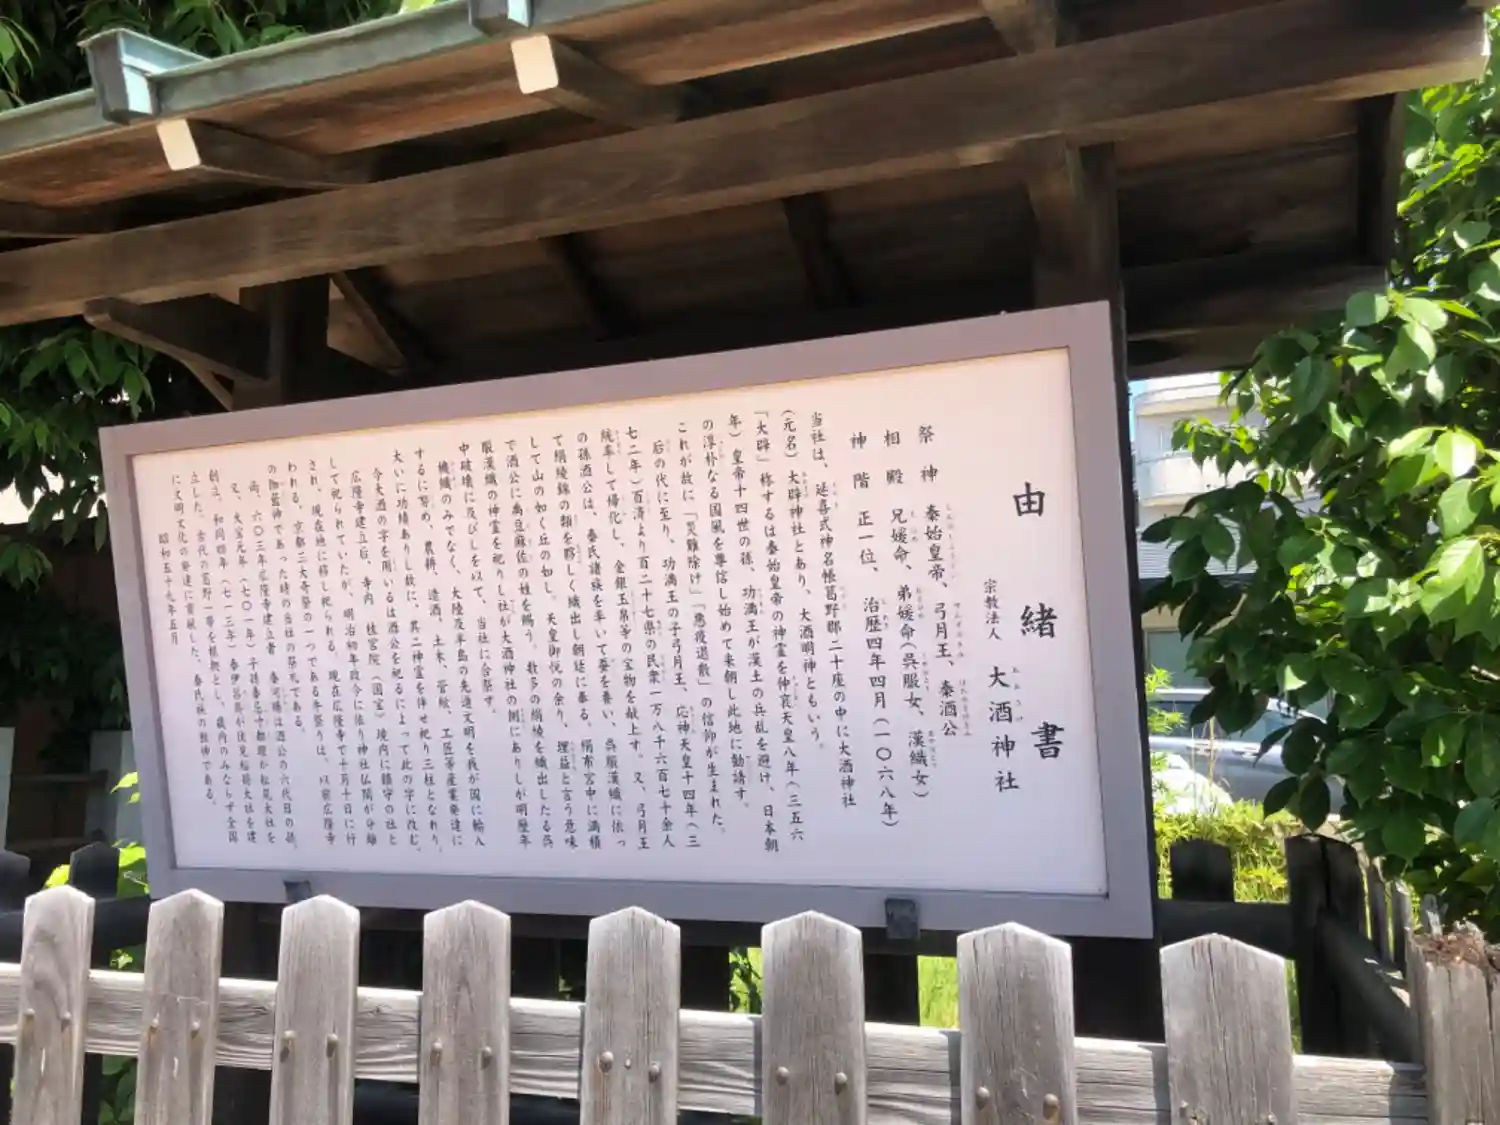 由緒書
宗教法人 大酒神社
祭神 秦始皇帝、弓月王、秦酒公
相殿 兄媛命、弟媛命(呉服女、漢織女)
神階 正一位、治歴四年四月(一〇六八年)
当社は、延喜式神名帳葛野郡二十座の中に大酒神社
(元名)大辟神社とあり、大酒明神ともいう。
「大辟」称するは秦始皇帝の神霊を仲哀天皇八年(三五六
年)皇帝十四世の孫、功満王が漢土の兵乱を避け、日本朝
の淳朴なる国風を尊信し始めて来朝し此地に勧請す。
これが故に「災難除け」「悪疫退散」の信仰が生まれた。
后の代に至り、功満王の子弓月王、応神天皇十四年(三
七二年)百済より百二十七県の民衆一万八千六百七十余人
統率して帰化し、金銀玉帛等の宝物を献上す。又、弓月王
の孫酒公は、秦氏諸族を率いて蚕を養い、呉服漢織に依っ
て絹綾錦の類を夥しく織出し朝廷に奉る。絹布宮中に満積
して山の如く丘の如し、天皇御悦の余り、埋益と言う意味
で酒公に禹豆麻佐の姓を賜う。数多の絹綾を織出したる呉
服漢織の神霊を祀りし社が大酒神社の側にありしが明歴年
中破壊に及びしを以て、当社に合祭す。
機織のみでなく、大陸及半島の先進文明を我が国に輸入
するに努め、農耕、造酒、土木、管絃、工匠等産業発達に
大いに功績ありし故に、其二神霊を併せ祀り三柱となれり。
今大酒の字を用いるは酒公を祀るによって此の字に改む。
広隆寺建立后、寺内 桂宮院(国宝)境内に鎮守の社と
して祀られていたが、明治初年政令に依り神社仏閣が分離
され、現在地に移し祀られる。現在広隆寺で十月十日に行
われる、京都三大奇祭の一つである牛祭りは、以前広隆寺
の伽藍神であった時の当社の祭礼である。
尚、六〇三年広隆寺建立者 秦河勝は酒公の六代目の孫。
又、大宝元年(七〇一年)子孫秦忌寸都理が松尾大社を
創立、和同四年(七一三年)秦伊呂具が伏見稲荷大社を建
立した。古代の葛野一帯を根拠とし、畿内のみならず全国
に文明文化の発達に貢献した。秦氏族の祖神である。
昭和五十九年五月